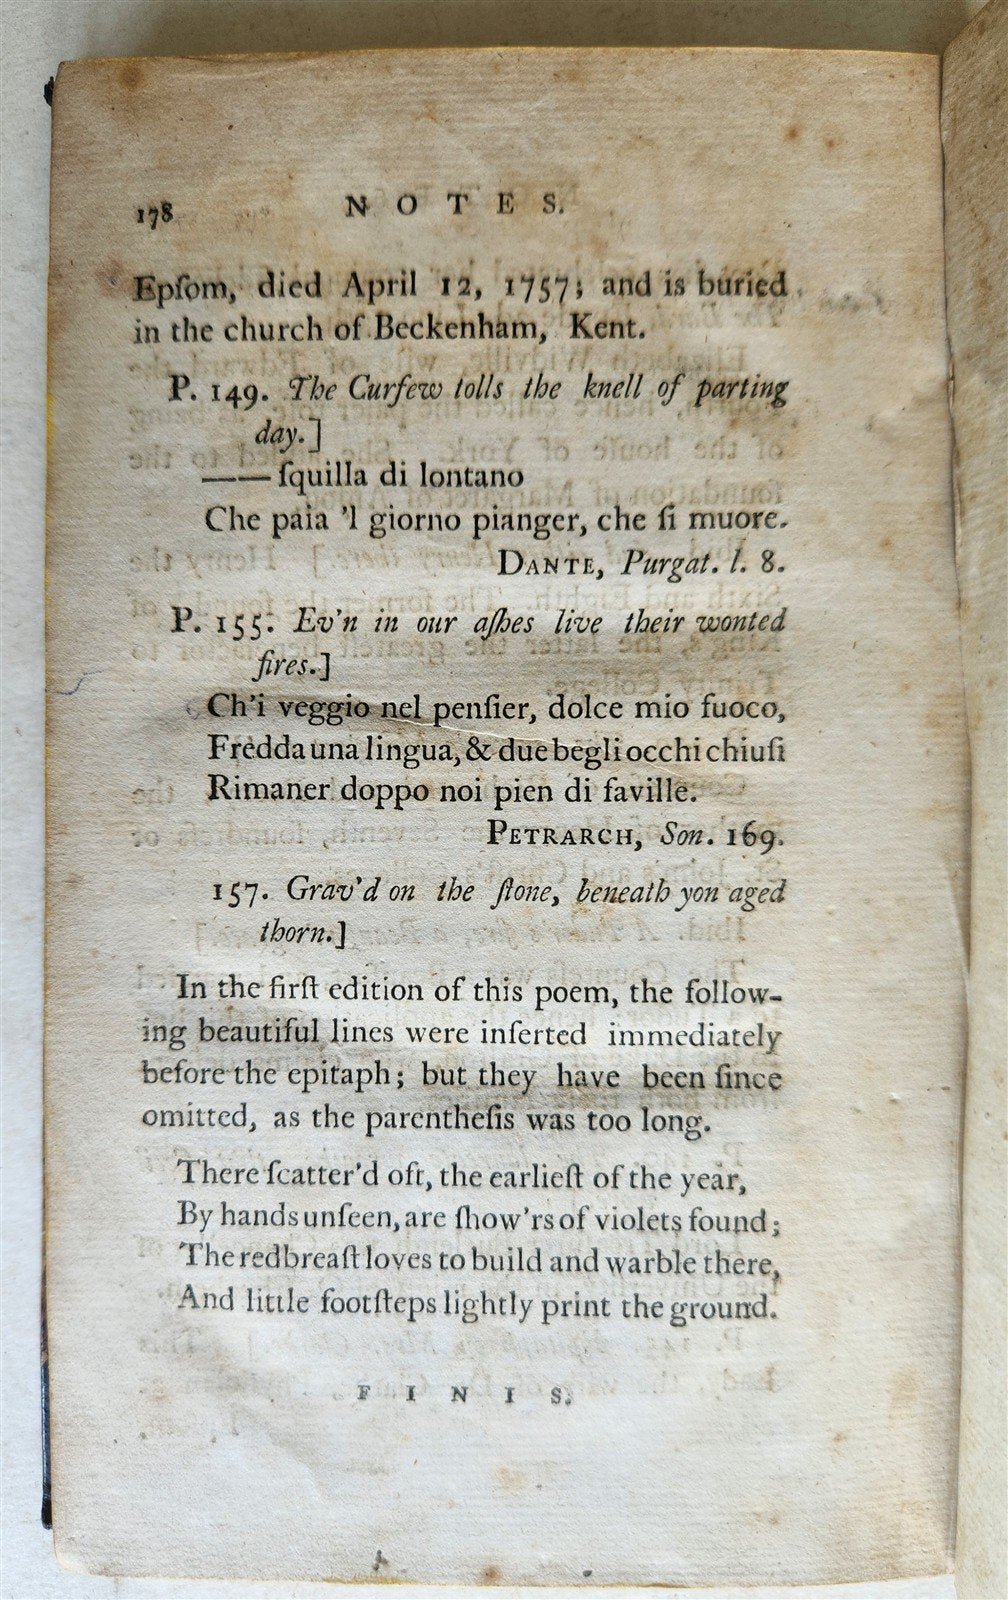 178 NOTES.
Epſom, died April 12, 1757; and is buried
in the church of Beckenham, Kent.
P. 149. The Curfew tolls the knell of parting
day.]
—— ſquilla di lontano
Che paia 'l giorno pianger, che ſi muore.
DANTE, Purgat. l. 8.
P. 155. Ev'n in our aſhes live their wonted
fires.]
Ch'i veggio nel penſier, dolce mio fuoco,
Fredda una lingua, & due begli occhi chiuſi
Rimaner doppo noi pien di faville.
PETRARCH, Son. 169.
157. Grav'd on the ſtone, beneath yon aged
thorn.]
In the firſt edition of this poem, the follow-
ing beautiful lines were inſerted immediately
before the epitaph; but they have been ſince
omitted, as the parentheſis was too long.
There ſcatter'd oft, the earlieſt of the year,
By hands unſeen, are ſhow'rs of violets found;
The redbreaſt loves to build and warble there,
And little footſteps lightly print the ground.
FINIS.